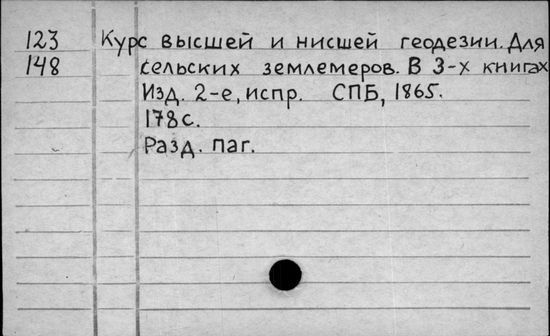 123 Курс высшей и нисшей геодезии. Для
148 сельских землемеров. В 3-х книгах
Изд. 2-е, испр. СПБ, 1865.
178 с.
Разд. паг.